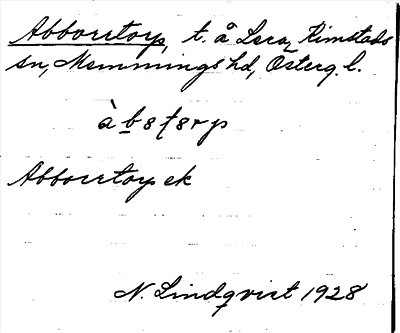 Abborrtorp, t. å Lera, Rimstads
sn, Memmings hd, Österg. l.
àb8ƭ8rp
Abborrtorp ek
N. Lindqvist 1928